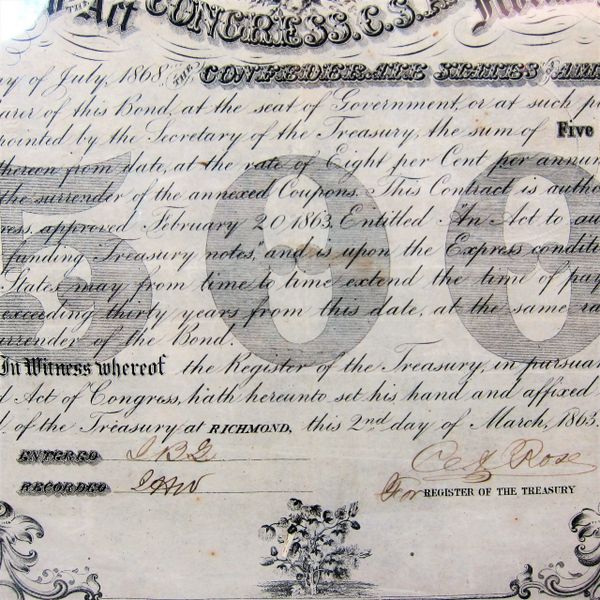 THE Act CONGRESS, C.S.A.
ay of July, 1868, THE CONFEDERATE STATES
earer of this Bond, at the seat of Government, or at such
ointed by the Secretary of the Treasury, the sum of Five
thereon from date, at the rate of Eight per Cent per annu
the surrender of the annexed Coupons. This Contract is autho
500
ress, approved February 20 1863, Entitled "An Act to au
funding Treasury notes," and is upon the Express conditi
States may from time to time extend the time of pay
exceeding thirty years from this date, at the same ra
urrender of the Bond.
In Witness whereof the Register of the Treasury, in pursuan
d Act of Congress, hath hereunto set his hand and affixed
of the Treasury at RICHMOND, this 2nd day of March, 1863.
ENTERED
RECORDED
Rose
For REGISTER OF THE TREASURY